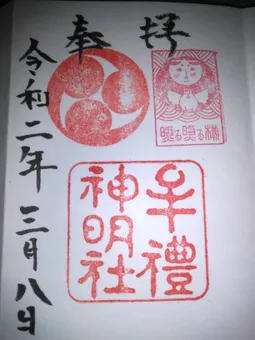 奉拝
照る照る様
牟禮
神明社
令和二年三月八日